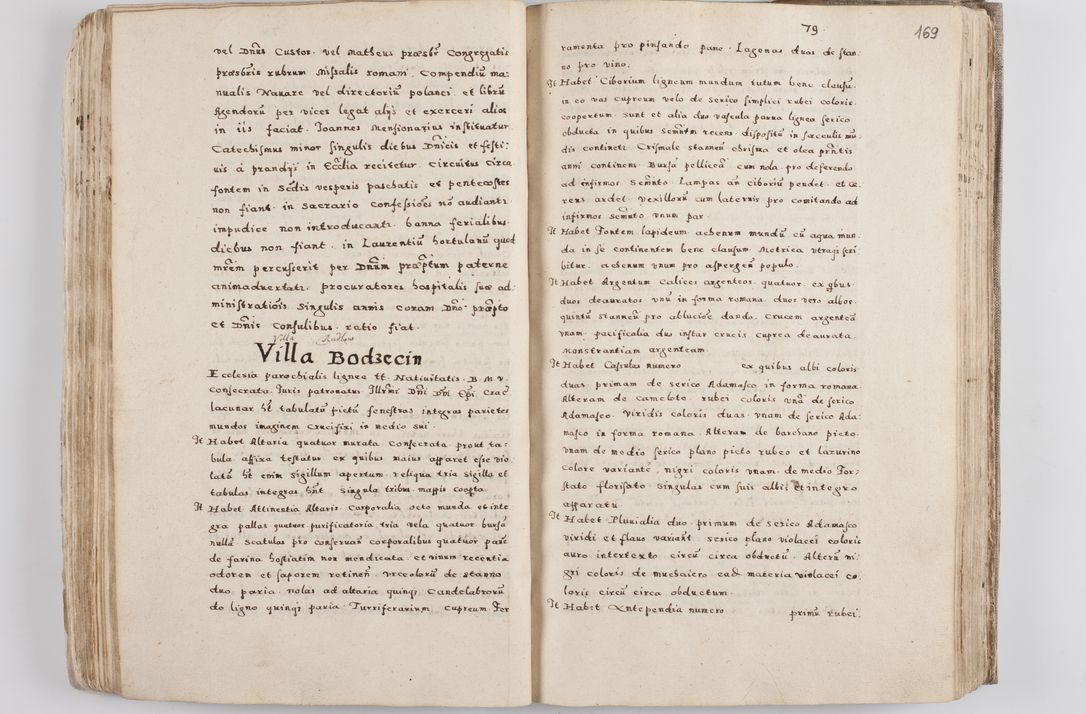 vel Dnūs Custos. vel Matheus præsbr̄ Congregatis
præsbris rubrum Missalis romani. Compendiū ma-
nualis Navare vel directoriū polanci et librū
Agendorū per vices legat alijs et exerceri alios
in iis faciat. Joannes Mensionarius instituatur
Catechismus minor singulis diebus Dnīcis et festi:
uis à prandijs in Ecclīa recitetur. Circuitus Circa
fontem in Scdis vesperis paschatis et pentecostes
non fiant. in Sacrario Confessioēs nō audiantr
impudice non introducantr. banna ferialibus
diebus non fiant. in Laurentiū hortulanū quod
mrēm percusserit per Dnūm præptum paterne
animadvertatr. procuratores hospitalis suæ ad
ministratiōis singulis annis coram Dnō præpto
et Dnīs Consulibus ratio fiat.
Villa Radlow
Villa Bodzecin
Ecclesia parochialis lignea tt. Nativitatis. B. M. V.
Consecrata. Juris patronatus Illrmi Dni Dni Epi. Crac
lacunar ht tabulatū pictū fenestras integras parietes
mundos imaginem Crucifixi in medio sui.
It Habet Altaria quatuor murata. Consecrata. prout ta:
bula affixa testatur. ex quibus maius apparet esse vio
latū ht enim sigillum apertum. reliqua tria sigilla et
tabulas integras hnt. singula tribus mappis coopta.
It Habet Attinentia Altaris. Corporalia octo munda et inte
gra pallas quatuor purificatoria tria vela quatuor bursā
nullā Scatulas pro conservan corporalibus quatuor pane
de farina hostiatim non mendicata. et vinum recentia
odorem et saporem retinen. Vrceolorū de stanno
duo paria. nolas ad altaria quinqs Candelabrorū
de ligno quinqs paria. Turriferarium cupreum. For
79.
169
ramenta pro pinsando pane. Lagenas duas de stan:
no pro vino.
It Habet Ciborium ligneum mundum tutum bene clausū.
in eo vas cupreum velo de serico simplici rubei coloris.
coopertum. sunt et alia duo vascula parva lignea serico
obducta in quibus Semntm recens. dispositū in sacculis mū
dis contineti Crismale stanneū chrisma et olea prntis
anni continens. Bursā pelliceā cum nola. pro deferendo
ad infirmos Semnto. Lampas an ciboriū pendet. et Ce
reus ardet. Vexillorū cum laternis pro comitando ad
infirmos semnto vnum par.
It Habet Fontem. lapideum. ahenum mundū cū aqua mun.
da in se continentem bene clausum. Metrica vtraqs scri
bitur. ahenum vnum pro aspergen populo.
It Habet Argentum Calices argenteos. quatuor. ex qbus
duos deauratos vnū in forma romana. duos vero albos.
quintū stanneū pro ablucioē dando. Crucem argenteā
vnam. pacificalia duo instar crucis cuprea deaurata.
Monstrantiam argenteam.
It Habet Casulas numero ex quibus albi coloris
duas. primam de serico Adamasco in forma romana.
Alteram de cameloto. rubei coloris vnā de serico.
Adamasco. Viridis coloris duas. vnam de serico Ada:
masco in forma romana. Alteram de barchano picto.
vnam de medio serico plano picto rubeo et lazurino
colore variante. nigri coloris vnam. de medio For:
stato florisato singulas cum suis albis et integro
apparatu.
It Habet Pluvialia duo primum de serico Adamasco
viridi et flavo variant. serico plano violacei coloris
auro intertexto circū circa obductū. Alterū ni:
gri coloris de muchaiero. ead materia violacei co
loris circū circa obductum.
It Habet Antependia numero primū rubei: